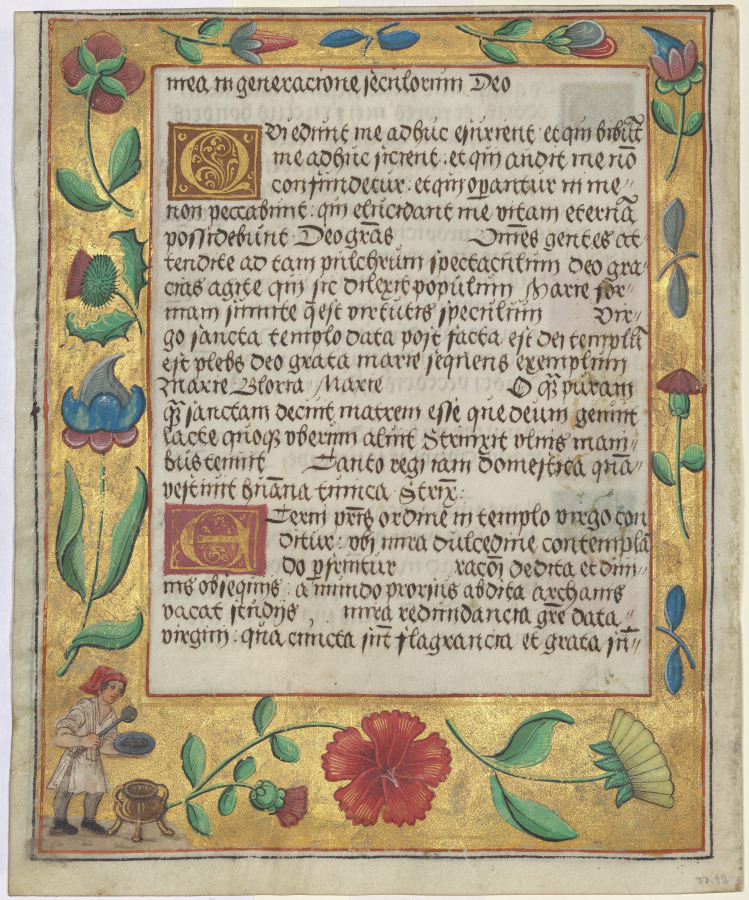 mea in generacione seculorum Deo
Qui edunt me adhuc esurient et qui bibūt
me adhuc sicient . et qui audit me nō
confundetur : et qui opantur in me
non peccabunt : qui elucidant me vitam eternā
possidebunt Deo grās Omēs gentes at
tendite ad tam pulchrum spectaculum deo gra
cias agite qui sic dilexit populum Marie for
mam sumite q̄ est virtutis speculum Vir
go sancta templo data post facta est dei templū
est plebs deo grata marie sequens exemplum
Marie Gloria Marie O q̄ puram
q̄ sanctam decuit matrem esse que deum genuit
lacte quoqȝ vberum aluit Strinxit vlnis mani
bus tenuit Tanto regi iam domestica quā
vestiuit huāna tunica Strix :
Eterni prīs ordine in templo virgo con
ditur : vbi mira dulcedine contemplā
do pfruitur racōi dedita et diui
nis obsequiis : a mundo prorsus abdita archanis
vacat studijs , mira redundancia grē data
virgini : qua cuncta sūt flagrancia et grata sū
77.98